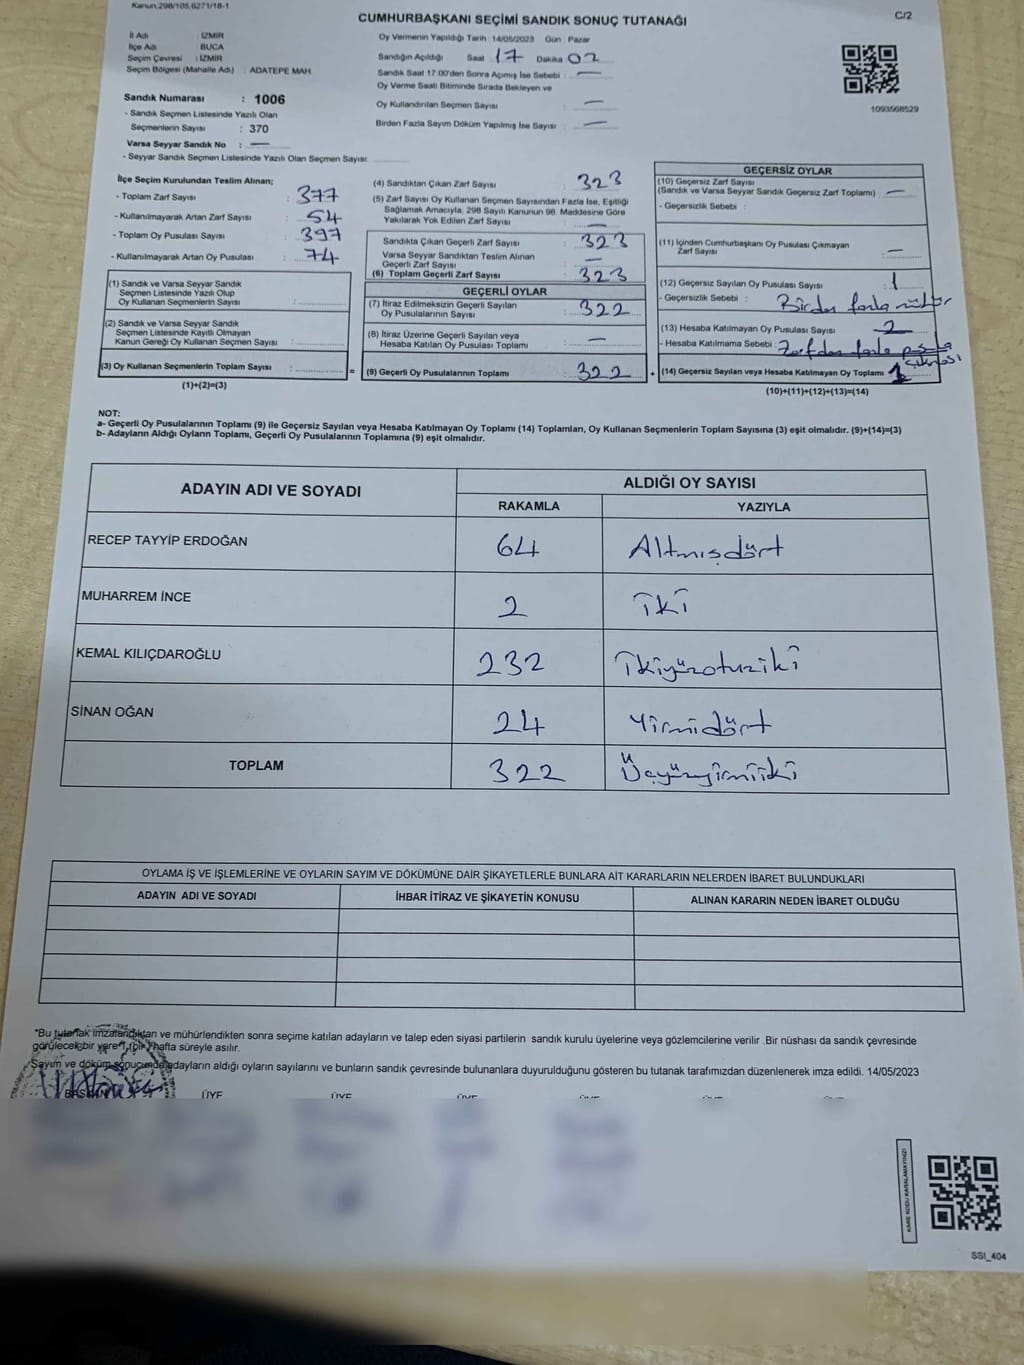 Kanun.298/105,6271/18-1
CUMHURBAŞKANI SEÇİMİ SANDIK SONUÇ TUTANAĞI
C/2
İl Adı : İZMİR
İlçe Adı : BUCA
Seçim Çevresi : İZMİR
Seçim Bölgesi (Mahalle Adı) : ADATEPE MAH.
Oy Vermenin Yapıldığı Tarih : 14/05/2023 Gün : Pazar
Sandığın Açıldığı Saat 17 Dakika 02
Sandık Saat 17:00'den Sonra Açımış İse Sebebi : —
Oy Verme Saati Bitiminde Sırada Bekleyen ve
Oy Kullandırılan Seçmen Sayısı : —
Birden Fazla Sayım Döküm Yapılmış İse Sayısı : —
1093568529
Sandık Numarası : 1006
- Sandık Seçmen Listesinde Yazılı Olan
Seçmenlerin Sayısı : 370
Varsa Seyyar Sandık No : —
- Seyyar Sandık Seçmen Listesinde Yazılı Olan Seçmen Sayısı:
İlçe Seçim Kurulundan Teslim Alınan;
- Toplam Zarf Sayısı : 377
- Kullanılmayarak Artan Zarf Sayısı : 54
- Toplam Oy Pusulası Sayısı : 397
- Kullanılmayarak Artan Oy Pusulası : 74
(1) Sandık ve Varsa Seyyar Sandık
Seçmen Listesinde Yazılı Olup
Oy Kullanan Seçmenlerin Sayısı :
(2) Sandık ve Varsa Seyyar Sandık
Seçmen Listesinde Kayıtlı Olmayan
Kanun Gereği Oy Kullanan Seçmen Sayısı :
(3) Oy Kullanan Seçmenlerin Toplam Sayısı : =
(1)+(2)=(3)
(4) Sandıktan Çıkan Zarf Sayısı : 323
(5) Zarf Sayısı Oy Kullanan Seçmen Sayısından Fazla İse, Eşitliği
Sağlamak Amacıyla, 298 Sayılı Kanunun 98. Maddesine Göre
Yakılarak Yok Edilen Zarf Sayısı : —
Sandıkta Çıkan Geçerli Zarf Sayısı : 323
Varsa Seyyar Sandıktan Teslim Alınan
Geçerli Zarf Sayısı : —
(6) Toplam Geçerli Zarf Sayısı : 323
GEÇERLİ OYLAR
(7) İtiraz Edilmeksizin Geçerli Sayılan
Oy Pusulalarının Sayısı : 322
(8) İtiraz Üzerine Geçerli Sayılan veya
Hesaba Katılan Oy Pusulası Toplamı : —
(9) Geçerli Oy Pusulalarının Toplamı : 322 +
GEÇERSİZ OYLAR
(10) Geçersiz Zarf Sayısı
(Sandık ve Varsa Seyyar Sandık Geçersiz Zarf Toplamı) : —
- Geçersizlik Sebebi :
(11) İçinden Cumhurbaşkanı Oy Pusulası Çıkmayan
Zarf Sayısı : —
(12) Geçersiz Sayılan Oy Pusulası Sayısı : 1
- Geçersizlik Sebebi : Birden fazla mühür
(13) Hesaba Katılmayan Oy Pusulası Sayısı : 2
- Hesaba Katılmama Sebebi : Zarfdan fazla pusula
çıkması
(14) Geçersiz Sayılan veya Hesaba Katılmayan Oy Toplamı :
(10)+(11)+(12)+(13)=(14)
NOT:
a- Geçerli Oy Pusulalarının Toplamı (9) ile Geçersiz Sayılan veya Hesaba Katılmayan Oy Toplamı (14) Toplamları, Oy Kullanan Seçmenlerin Toplam Sayısına (3) eşit olmalıdır. (9)+(14)=(3)
b- Adayların Aldığı Oyların Toplamı, Geçerli Oy Pusulalarının Toplamına (9) eşit olmalıdır.
ADAYIN ADI VE SOYADI ALDIĞI OY SAYISI
RAKAMLA YAZIYLA
RECEP TAYYİP ERDOĞAN 64 Altmışdört
MUHARREM İNCE 2 iki
KEMAL KILIÇDAROĞLU 232 ikiyüzotuziki
SİNAN OĞAN 24 Yirmidört
TOPLAM 322 Üçyüzyirmiiki
OYLAMA İŞ VE İŞLEMLERİNE VE OYLARIN SAYIM VE DÖKÜMÜNE DAİR ŞİKAYETLERLE BUNLARA AİT KARARLARIN NELERDEN İBARET BULUNDUKLARI
ADAYIN ADI VE SOYADI İHBAR İTİRAZ VE ŞİKAYETİN KONUSU ALINAN KARARIN NEDEN İBARET OLDUĞU
*Bu tutanak imzalandıktan ve mühürlendikten sonra seçime katılan adayların ve talep eden siyasi partilerin sandık kurulu üyelerine veya gözlemcilerine verilir .Bir nüshası da sandık çevresinde
görülecek bir yere 1 (bir) hafta süreyle asılır.
Sayım ve döküm sonucunda adayların aldığı oyların sayılarını ve bunların sandık çevresinde bulunanlara duyurulduğunu gösteren bu tutanak tarafımızdan düzenlenerek imza edildi. 14/05/2023
BAŞKAN ÜYE ÜYE
KARE KODU KARALAMAYINIZ!
SSI_404